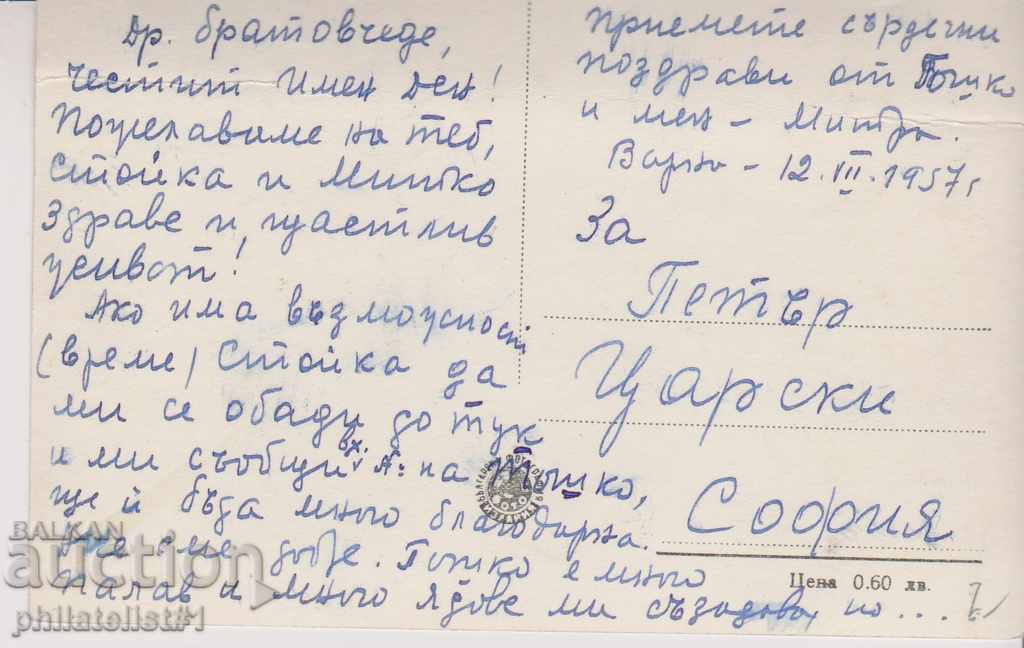 Др. братовчеде,
честит Имен Ден!
Пожелаваме на теб,
Стойка и Митко
здраве и щастлив
живот!
Ако има възможност
(време) Стойка да
ми се обади до тук
и ми съобщи вх. №: на Тошко,
ще ѝ бъда много благодарна.
Все сме добре. Гошко е много
палав и много ядове ми създава, но...
приемете сърдечни
поздрави от Гошко
и мен – Митра.
Варна – 12.VII.1957г
За
Петър
Царски
София
Цена 0.60 лв.
BALKAN
auction
philatelist#1